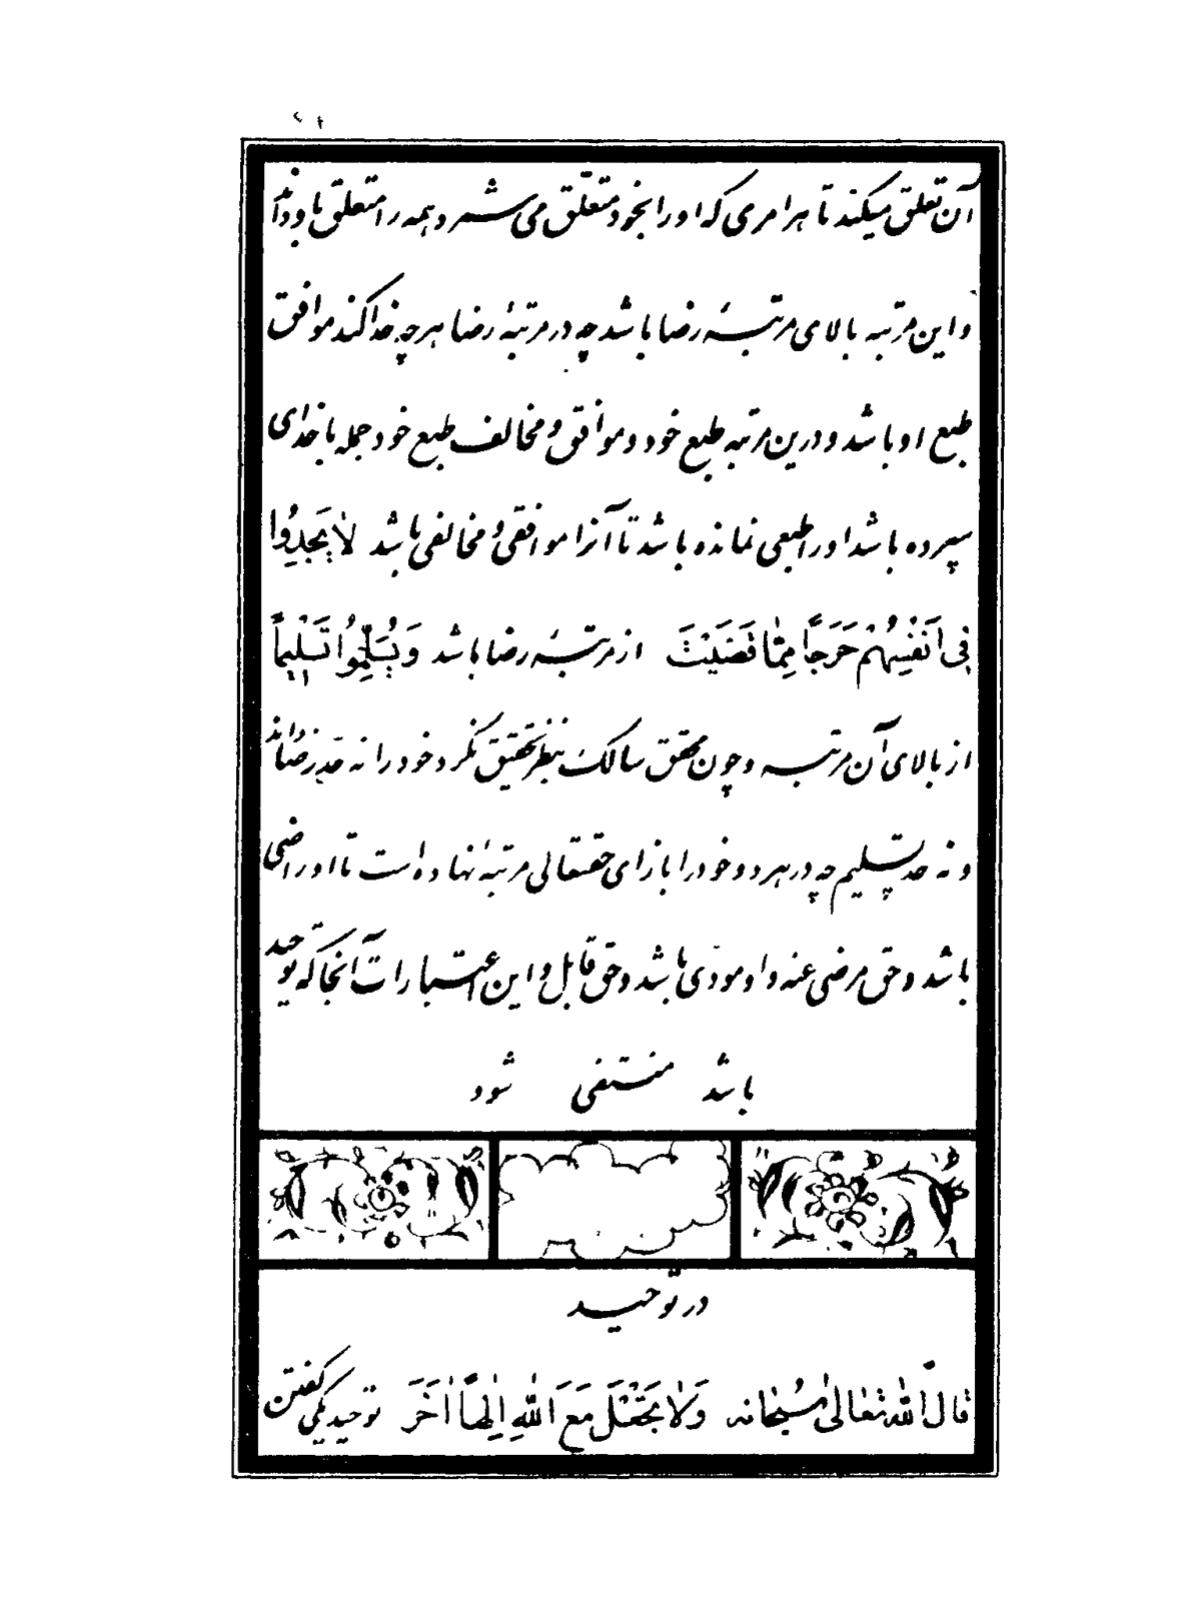 آن تعلق میکند تا هر امری که او را بخود متعلق می شمرد همه را متعلق باو داند
و این مرتبه بالای مرتبهٔ رضا باشد چه در مرتبهٔ رضا هرچه خدا کند موافق
طبع او باشد و درین مرتبه طبع خود و موافق و مخالف طبع خود جمله با خدای
سپرده باشد او را طبعی نمانده باشد تا آنرا موافقی و مخالفی باشد لا یَجِدُوا
فِی اَنْفُسِهِمْ حَرَجاً مِمّٰا قَضَیْتَ از مرتبهٔ رضا باشد وَ یُسَلِّمُوا تَسْلِیماً
از بالای آن مرتبه و چون محقق سالک بنظر تحقیق نگرد خود را نه حد رضا داند
و نه حد تسلیم چه در هر دو خود را بازای حقتعالی مرتبهٔ نهاده است تا او راضی
باشد و حق مرضی عنه و او مودی باشد و حق قابل و این اعتبارات آنجا که توحید
باشد منتفی شود
در توحید
قال اللّه تعالیٰ سُبحانه وَلاٰ تَجْعَلْ مَعَ اللّٰهِ اِلٰهاً اٰخَرَ توحید یکی گفتن